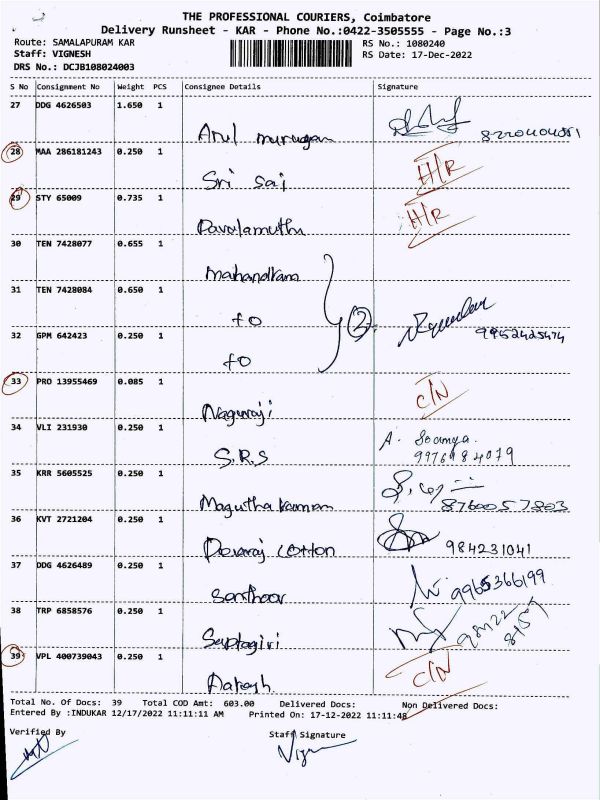 THE PROFESSIONAL COURIERS, Coimbatore
Delivery Runsheet - KAR - Phone No.:0422-3505555 - Page No.:3
Route: SAMALAPURAM KAR
RS No.: 1080240
Staff: VIGNESH
RS Date: 17-Dec-2022
DRS No.: DCJB108024003
S No Consignment No Weight PCS Consignee Details Signature
27 DDG 4626503 1.650 1
Arul murugan
28 MAA 286181243 0.250 1
Sri Sai H/R
29 STY 65009 0.735 1
H/R
30 TEN 7428077 0.655 1
31 TEN 7428084 0.650 1
to
32 GPM 642423 0.250 1
to
33 PRO 13955469 0.085 1
Naguraji C/N
34 VLI 231930 0.250 1
S.R.S A. Soumya.
35 KRR 5605525 0.250 1
8760057803
36 KVT 2721204 0.250 1
Devaraj cotton 984231041
37 DDG 4626489 0.250 1
9965366199
38 TRP 6858576 0.250 1
Saptagiri
39 VPL 400739043 0.250 1
C/N
Total No. Of Docs: 39 Total COD Amt: 603.00 Delivered Docs: Non Delivered Docs:
Entered By :INDUKAR 12/17/2022 11:11:11 AM Printed On: 17-12-2022 11:11:48
Verified By Staff Signature